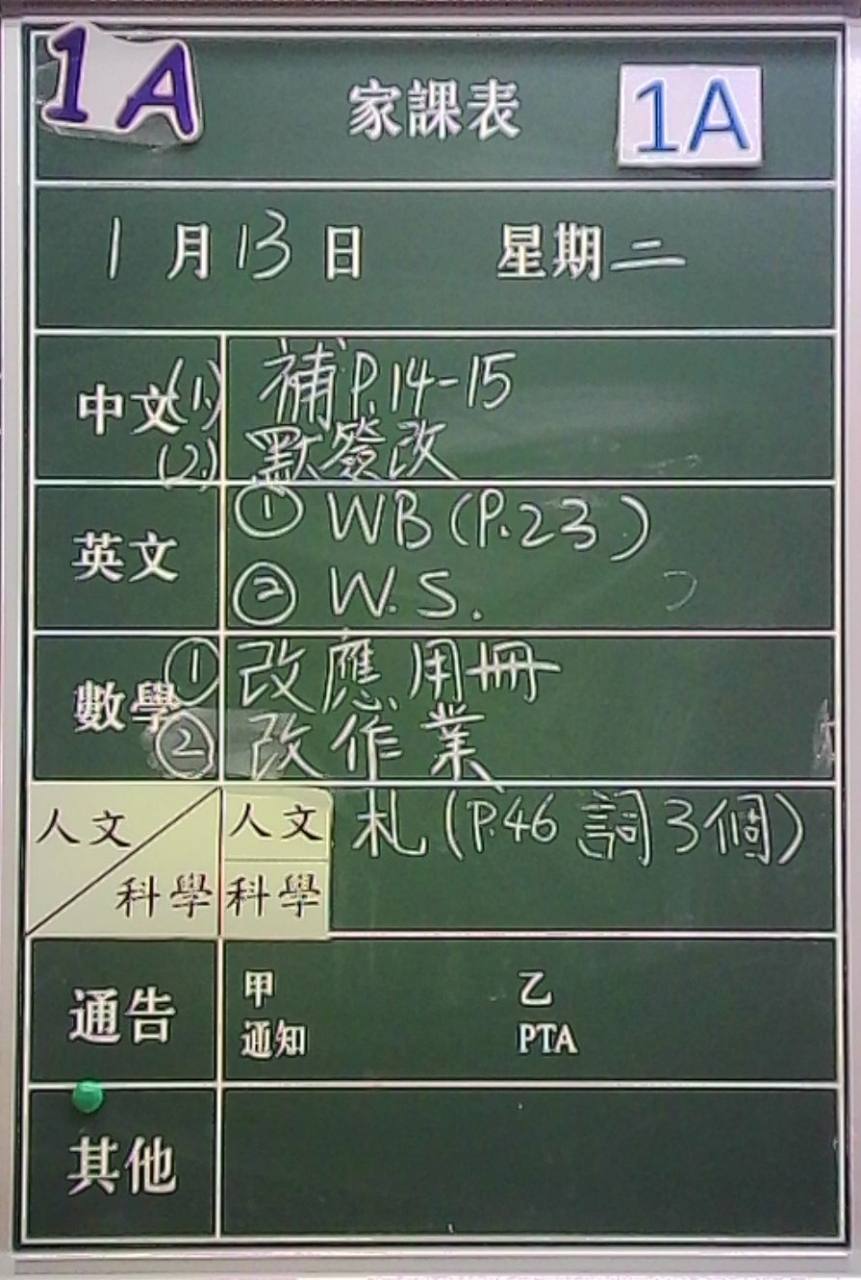 1A 家課表 1A
1月13日 星期二
中文 (1) 補P.14-15
(2) 默簽改
英文 ① WB (P.23)
② W.S.
數學 ① 改應用冊
② 改作業
人文 人文 札(P.46 詞3個)
科學 科學
通告 甲 乙
通知 PTA
其他